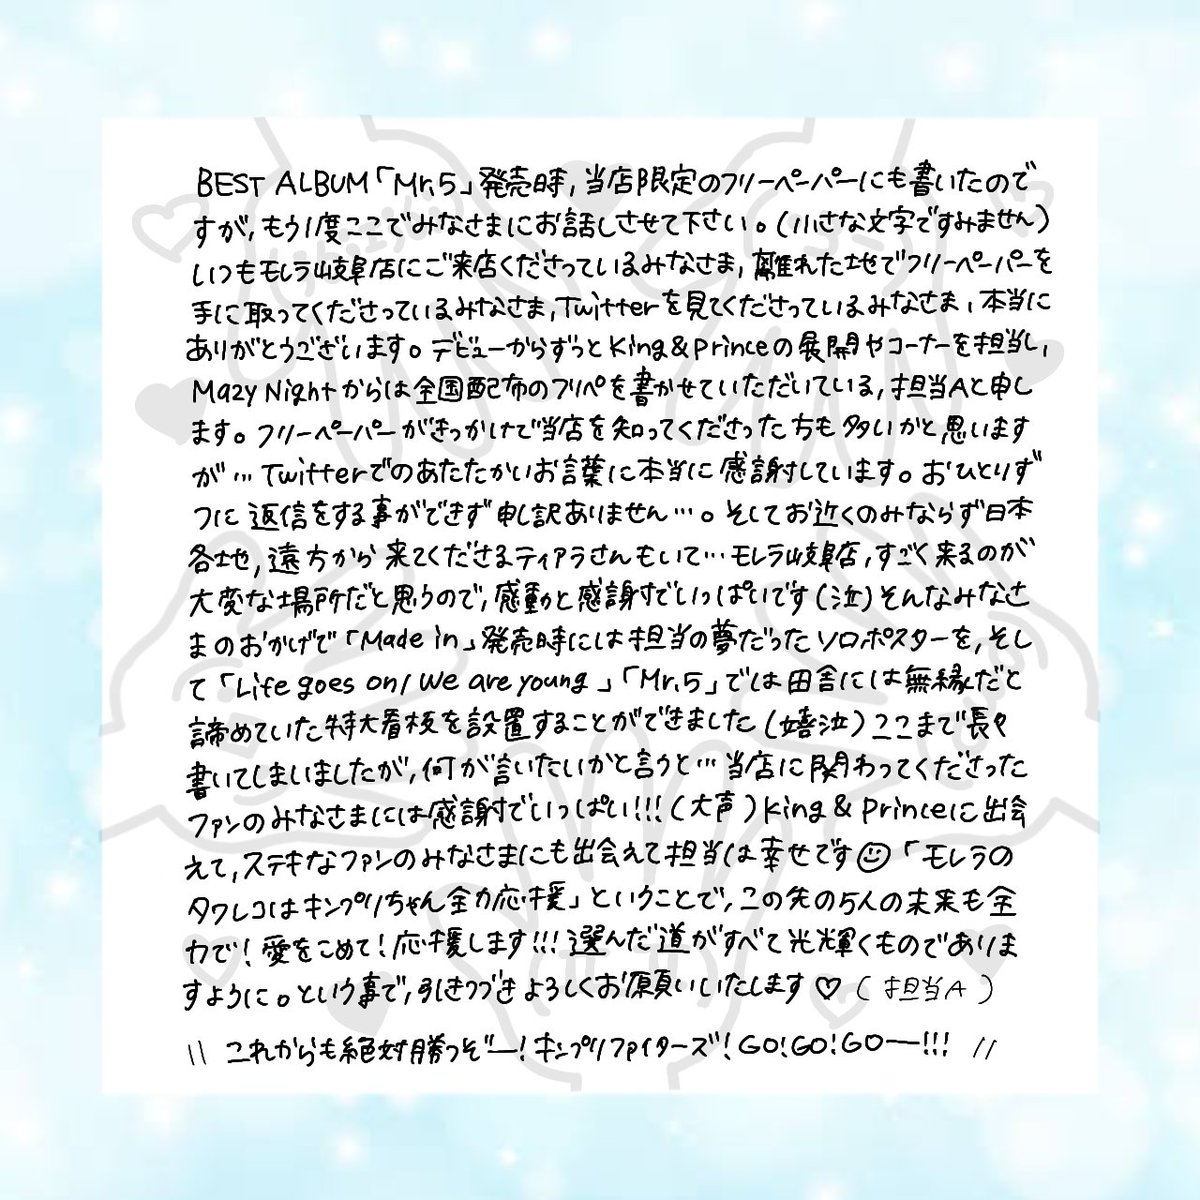 BEST ALBUM「Mr.5」発売時,当店限定のフリーペーパーにも書いたので
すが,もう1度ここでみなさまにお話しさせて下さい。(小さな文字ですみません)
いつもモレラ岐阜店にご来店くださっているみなさま,離れた地でフリーペーパーを
手に取ってくださっているみなさま,Twitterを見てくださっているみなさま,本当に
ありがとうございます。デビューからずっとKing&Princeの展開やコーナーを担当し,
Mazy Nightからは全国配布のフリペを書かせていただいている,担当Aと申し
ます。フリーペーパーがきっかけで当店を知ってくださった方も多いかと思います
が…Twitterでのあたたかいお言葉に本当に感謝しています。おひとりず
つに返信をする事ができず申し訳ありません…。そしてお近くのみならず日本
各地,遠方から来てくださるティアラさんもいて…モレラ岐阜店,すごく来るのが
大変な場所だと思うので,感動と感謝でいっぱいです(泣)そんなみなさ
まのおかげで「Made in」発売時には担当の夢だったソロポスターを,そし
て「Life goes on/We are young」「Mr.5」では田舎には無縁だと
諦めていた特大看板を設置することができました(嬉泣)ここまで長々
書いてしまいましたが,何が言いたいかと言うと…当店に関わってくださった
ファンのみなさまには感謝でいっぱい!!!(大声)King & Princeに出会
えて,ステキなファンのみなさまにも出会えて担当は幸せです☺「モレラの
タワレコはキンプリちゃん全力応援」ということで,この先の5人の未来も全
力で!愛をこめて!応援します!!!選んだ道がすべて光輝くものでありま
すように。という事で,引きつづきよろしくお願いいたします♡(担当A)
\\ これからも絶対勝つぞー!キンプリファイターズ!GO!GO!GOー!!! //